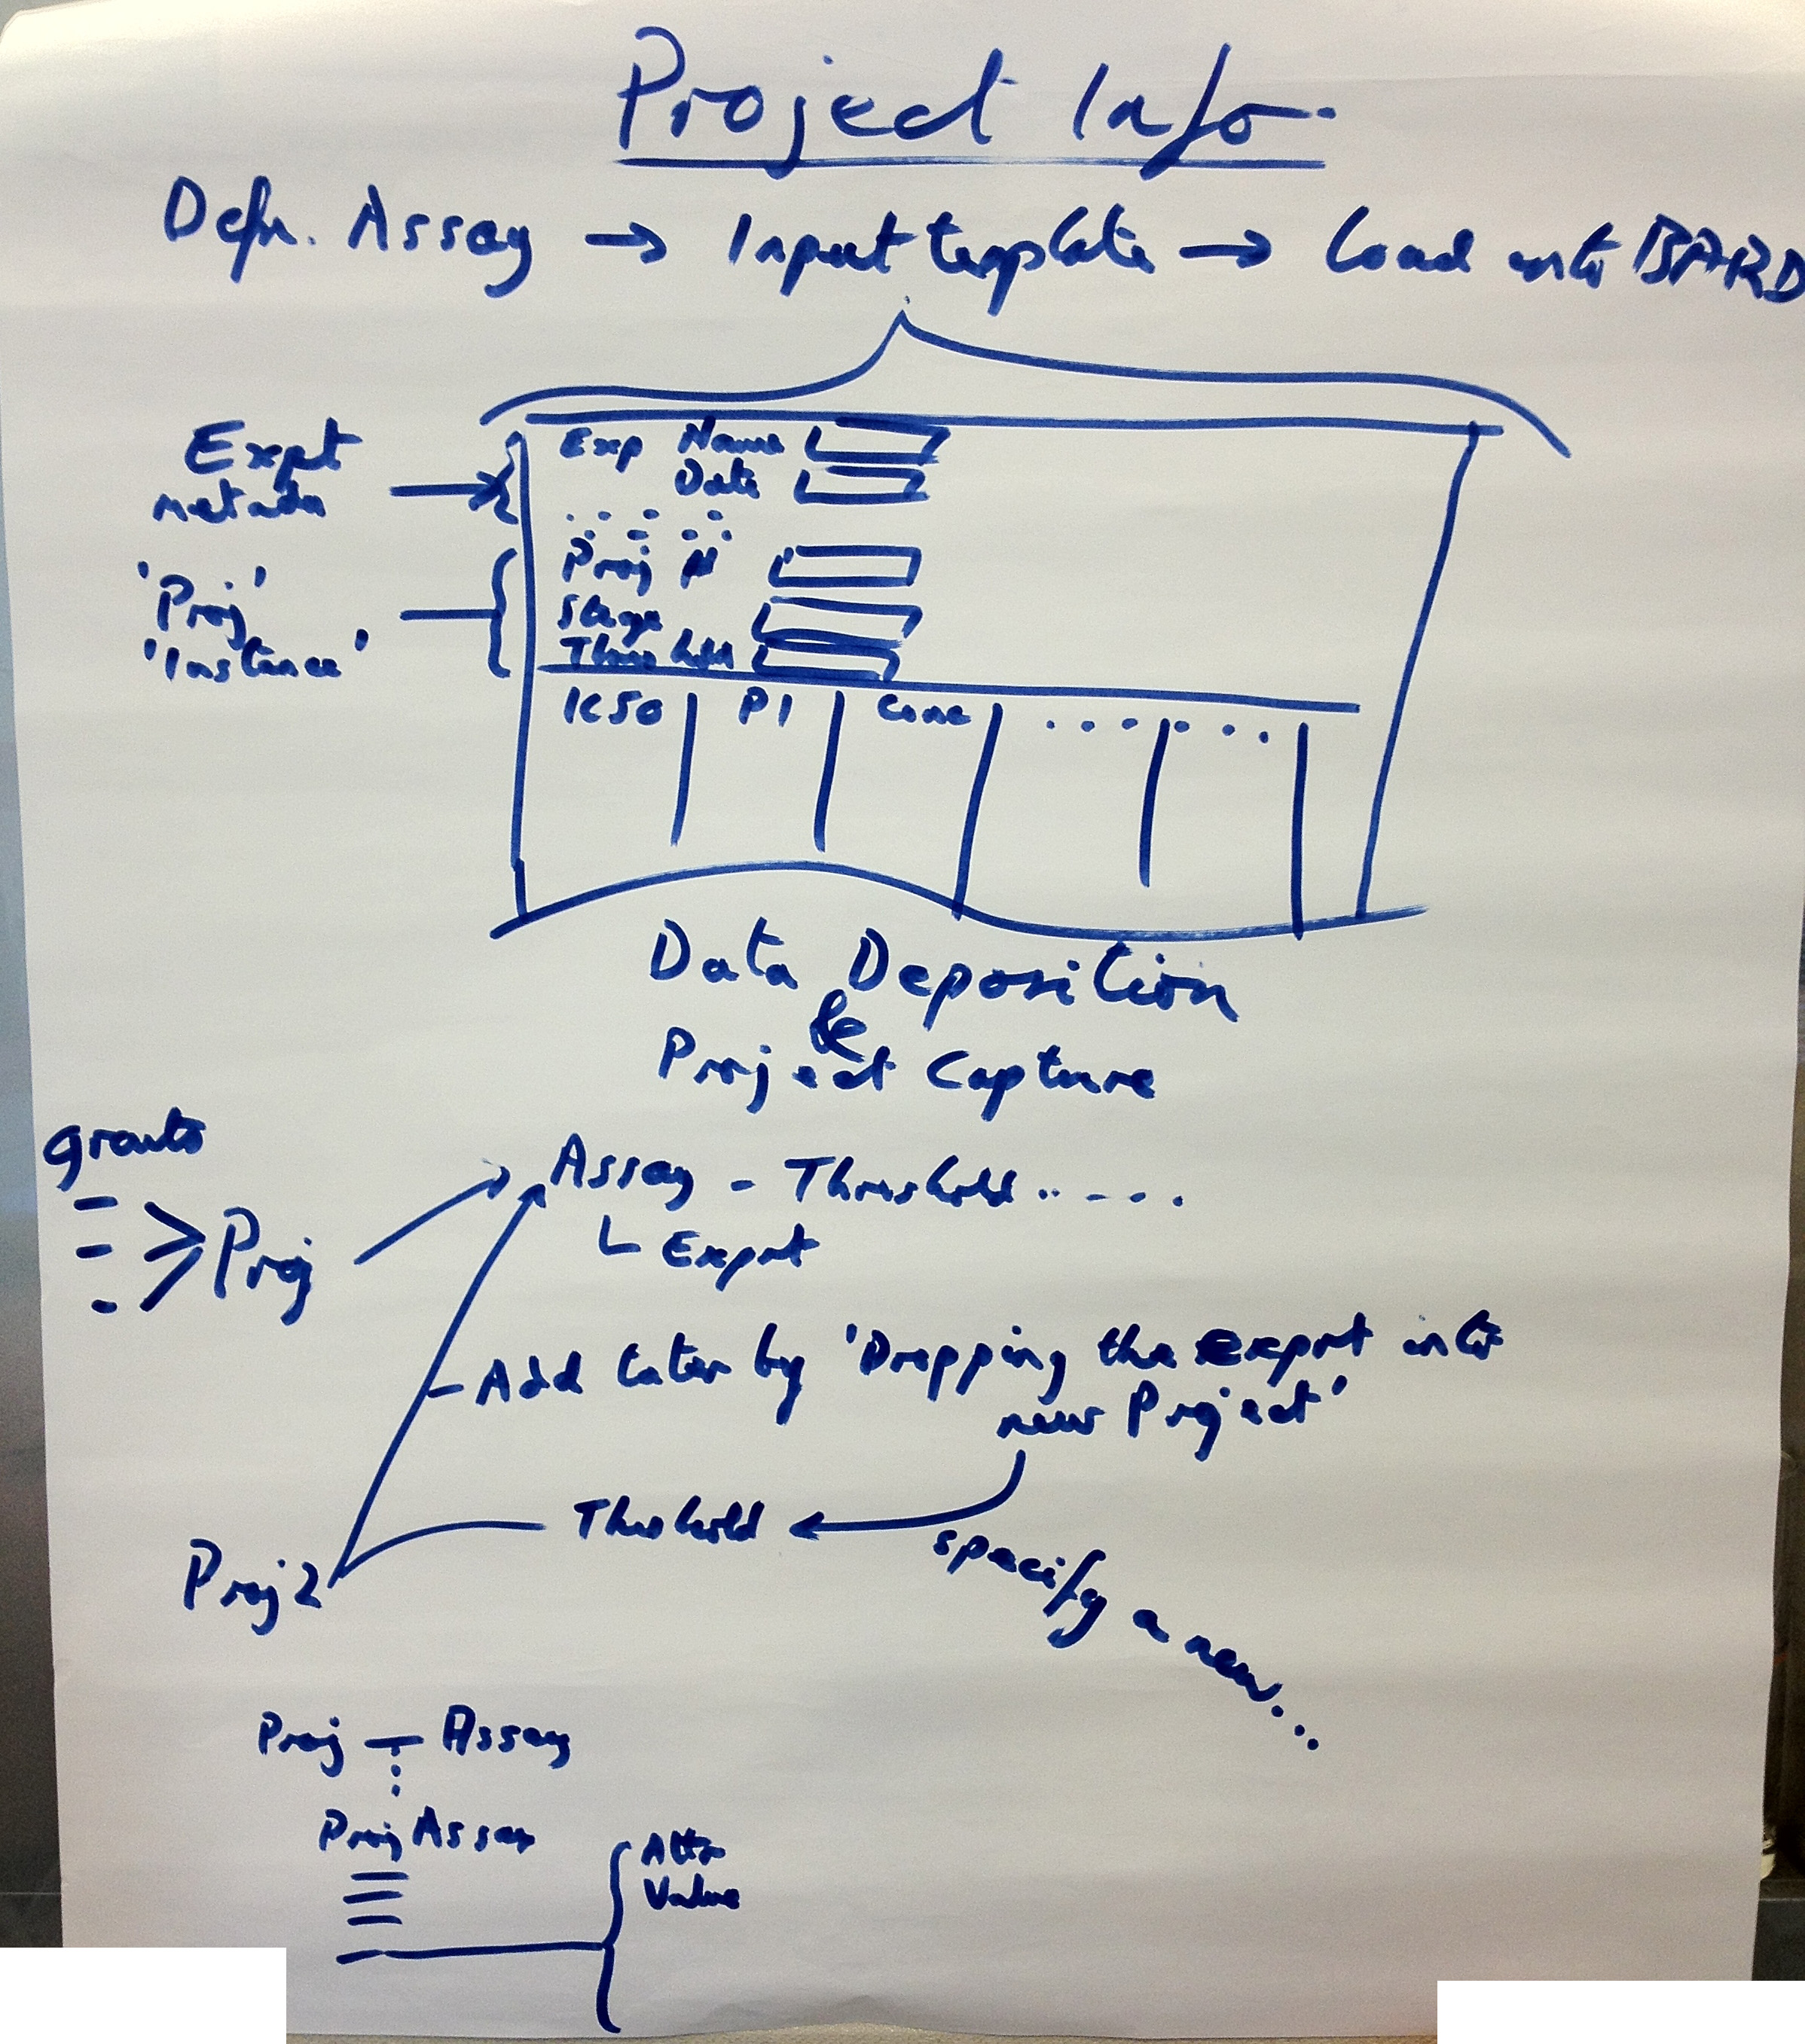 Project Info
Defn. Assay → Input template → Load into BARD
Expt
metada
Exp Name
Date
'Proj'
'Instance'
Proj #
Stage
Threshold
IC50 PI Conc
Data Deposition
&
Project Capture
grants
Assay - Threshold
Proj
Exprt
Add later by 'Dropping the exprt into
new Project'
Threshold
specify a new...
Proj 2
Proj - Assay
Proj Assay
Attr
Value